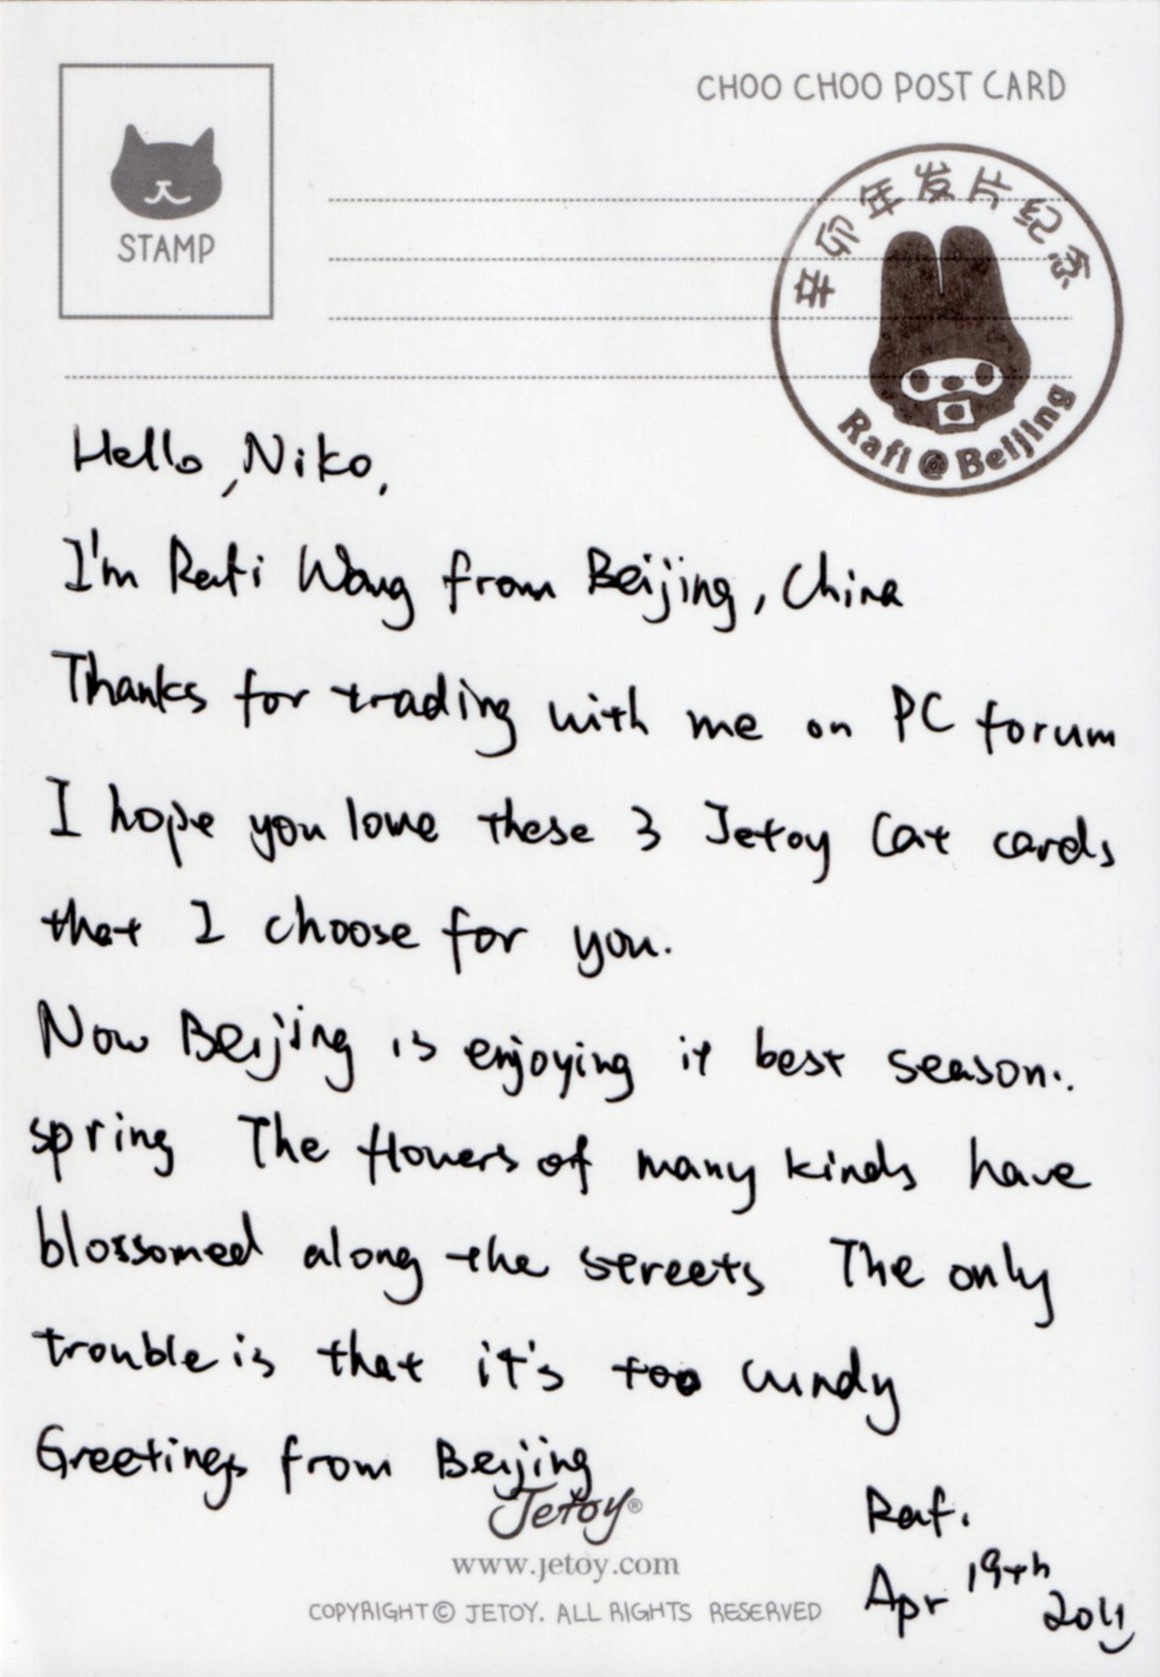 CHOO CHOO POST CARD
STAMP
辛卯年发片纪念
Rafi @ Beijing
Hello, Niko,
I'm Rafi Wang from Beijing, China
Thanks for trading with me on PC forum
I hope you love these 3 Jetoy Cat cards
that I choose for you.
Now Beijing is enjoying it best season..
spring The flowers of many kinds have
blossomed along the streets The only
trouble is that it's too windy
Greetings from Beijing
Rafi
Apr 19th 2011
Jetoy®
www.jetoy.com
COPYRIGHT © JETOY. ALL RIGHTS RESERVED